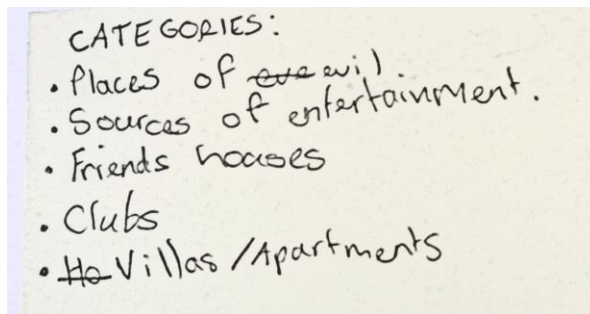 CATEGORIES:
• Places of evil.
• Sources of entertainment.
• Friends houses
• Clubs
• Villas / Apartments